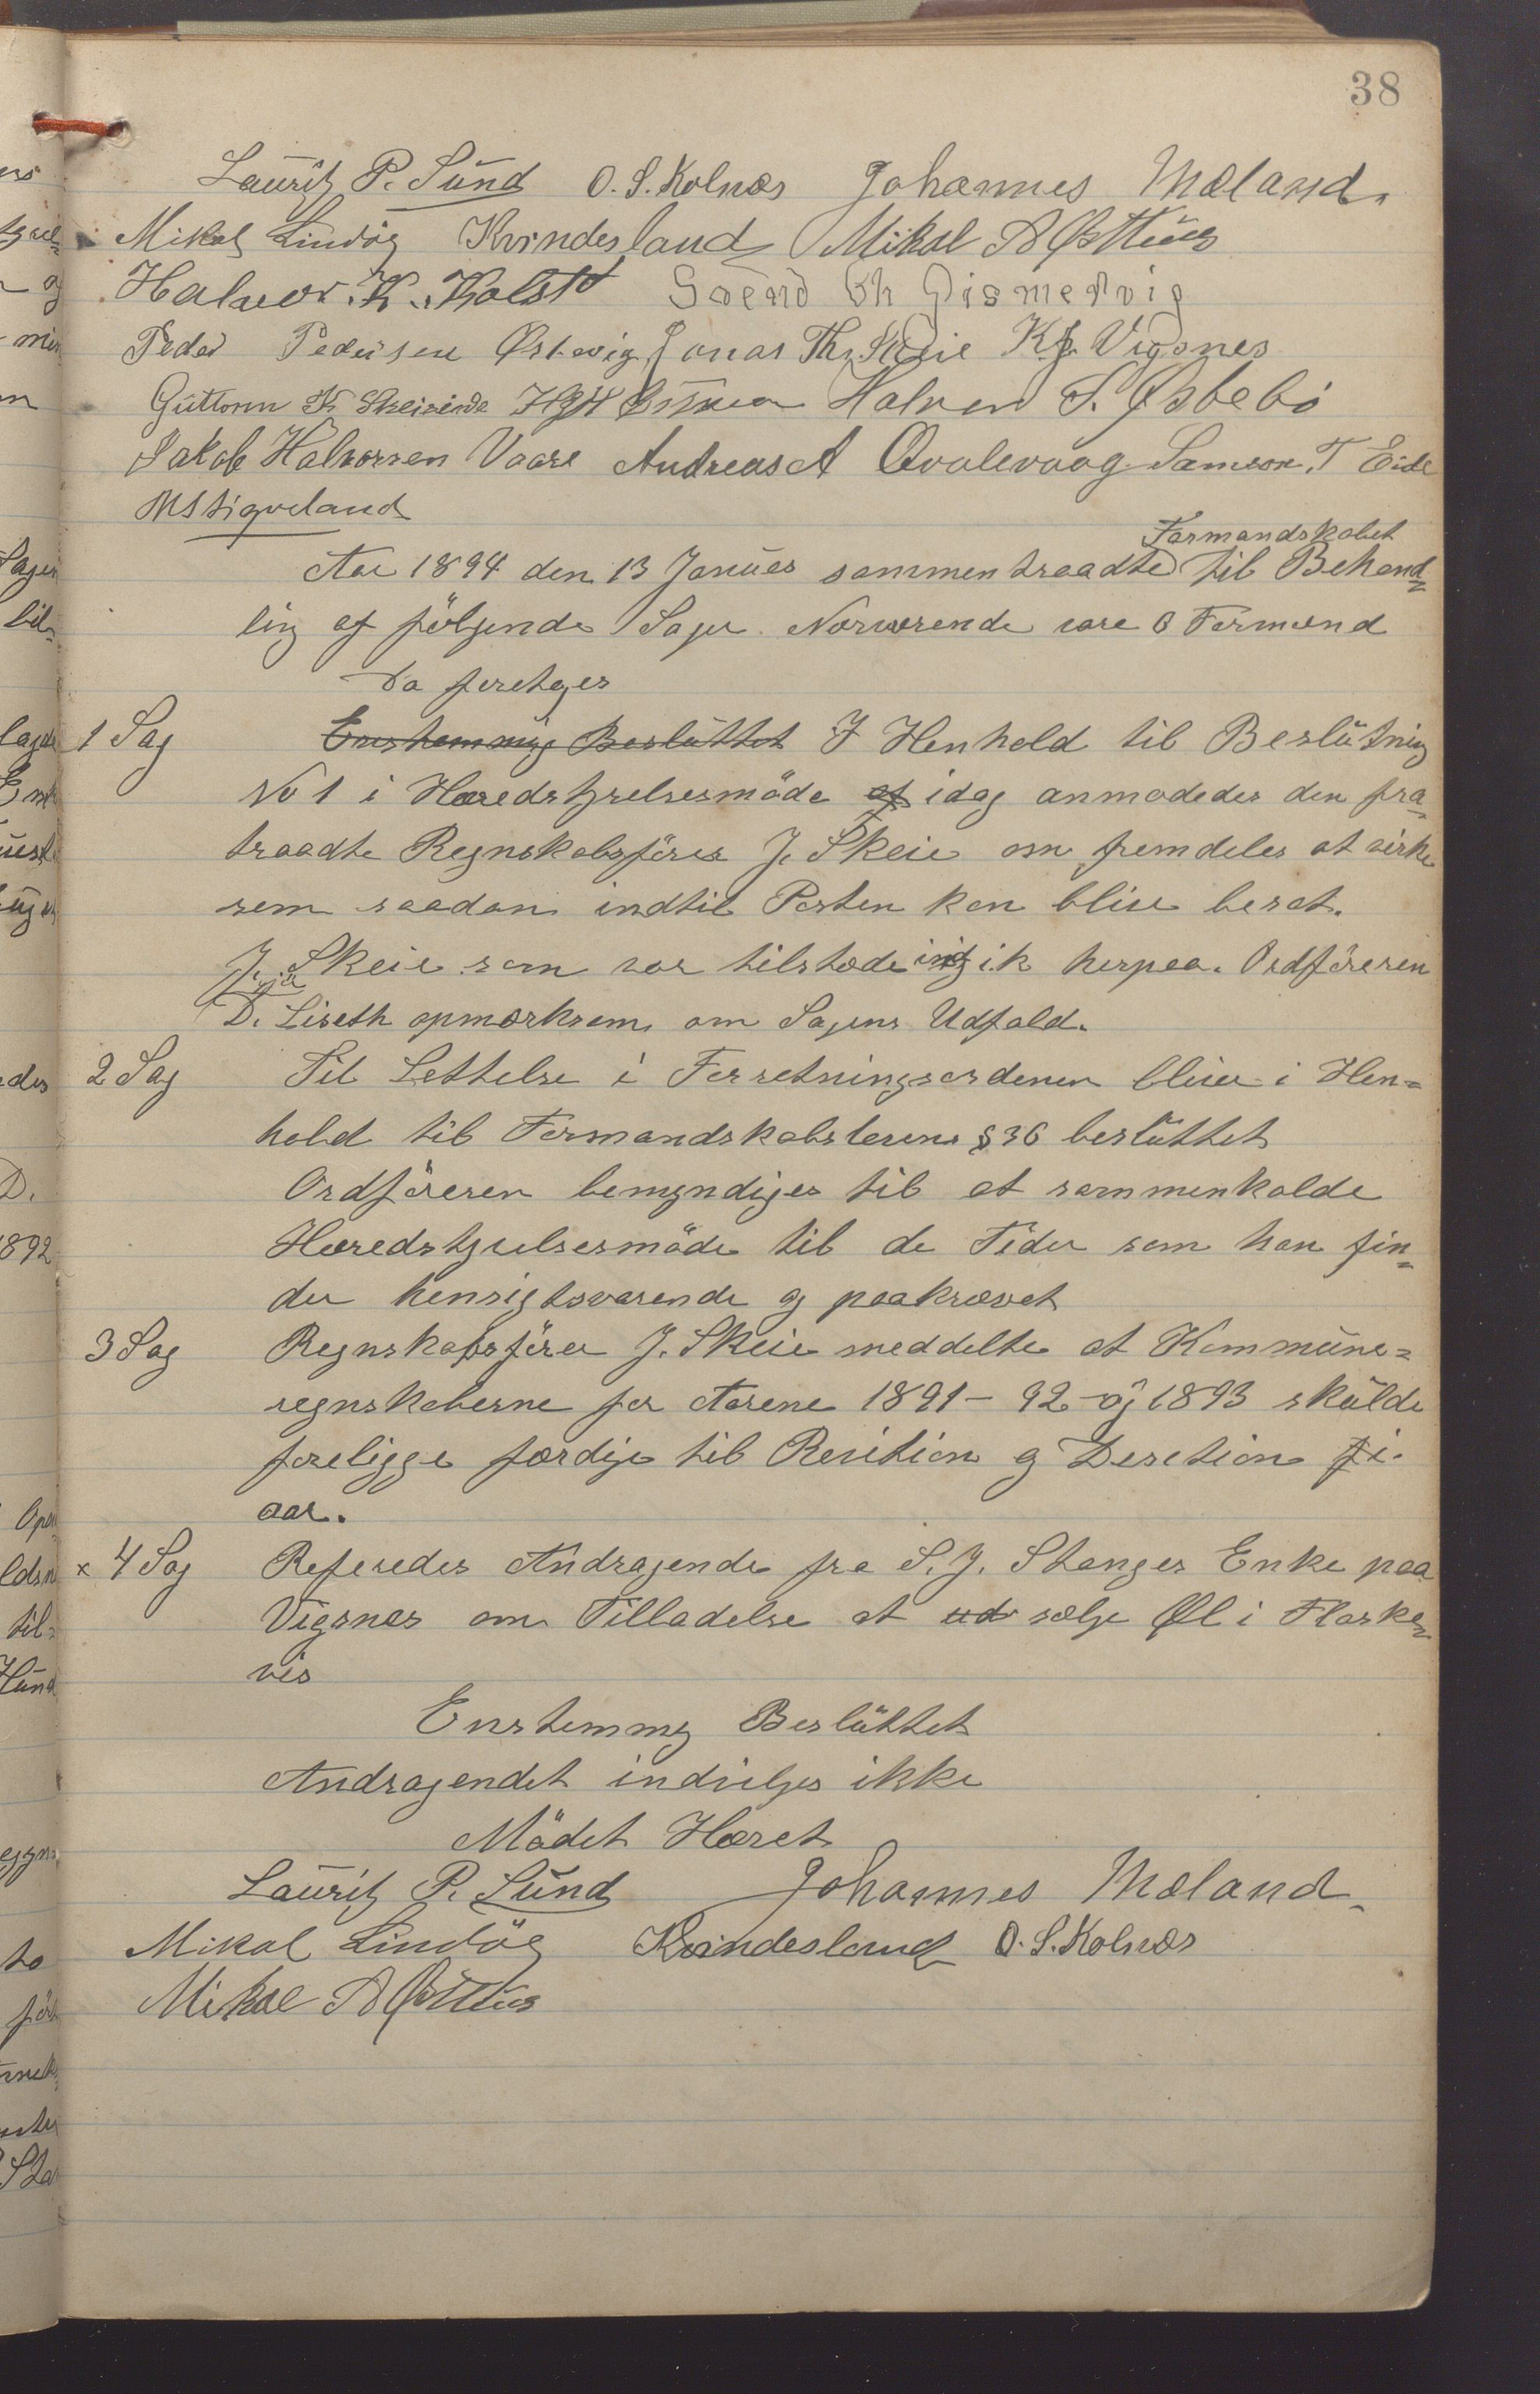 38
Lauritz P. Sund O. S. Kolnæs Johannes Mæland.
Mikal Lindøg Kvindesland Mikal A Østhus
Halvor. K. Kolstø Svend Ch Gismervig
Peder Pedersen Østevig Jonas Th. Skeie K. J. Vigsnes
Guttorm K Skeisvoll Halvor S. Østebø
Jakob Halvorsen Vaare Andreas A Qvalevaag Samson. T Eide
M Stiqveland
Formandskabet
Aar 1894 den 13 Januar sammentraadte til Behand-
ling af følgende Sager. Nærværende vare 6 Formænd
Da foretoges
1 Sag Enstemmig Besluttet I Henhold til Beslutning
No 1 i Heredstyrelsesmøde af idag anmodedes den fra-
traadte Regnskabsfører J. Skeie om fremdeles at virke
som saadan indtil Posten kan blive besat.
J. Skeie som var tilstæde indgik herpaa. Ordføreren
D. Liseth opmærksom om Sagens Udfald.
2 Sag Til Lettelse i Forretningsordenen bliver i Hen-
hold til Formandskabslovens § 36 besluttet
Ordføreren bemyndiges til at sammenkalde
Heredstyrelsesmøde til de Tider som han fin-
der hensigtsvarende og paakrævet
3 Sag Regnskabsfører J. Skeie meddelte at Kommune-
regnskaberne for Aarene 1891 - 92 - og 1893 skulde
foreligge færdige til Revition og Desetion f i
aar.
x 4 Sag Referedes Andragende fra S. J. Stanges Enke paa
Vigsnæs om Tilladelse at ud sælge Øl i Flaske-
vis
Enstemmig Besluttet
Andragendet indvilges ikke
Mødet Hævet
Lauritz P. Sund Johannes Mæland.
Mikal Lindøg Kvindesland O. S. Kolnæs
Mikal A Østhus